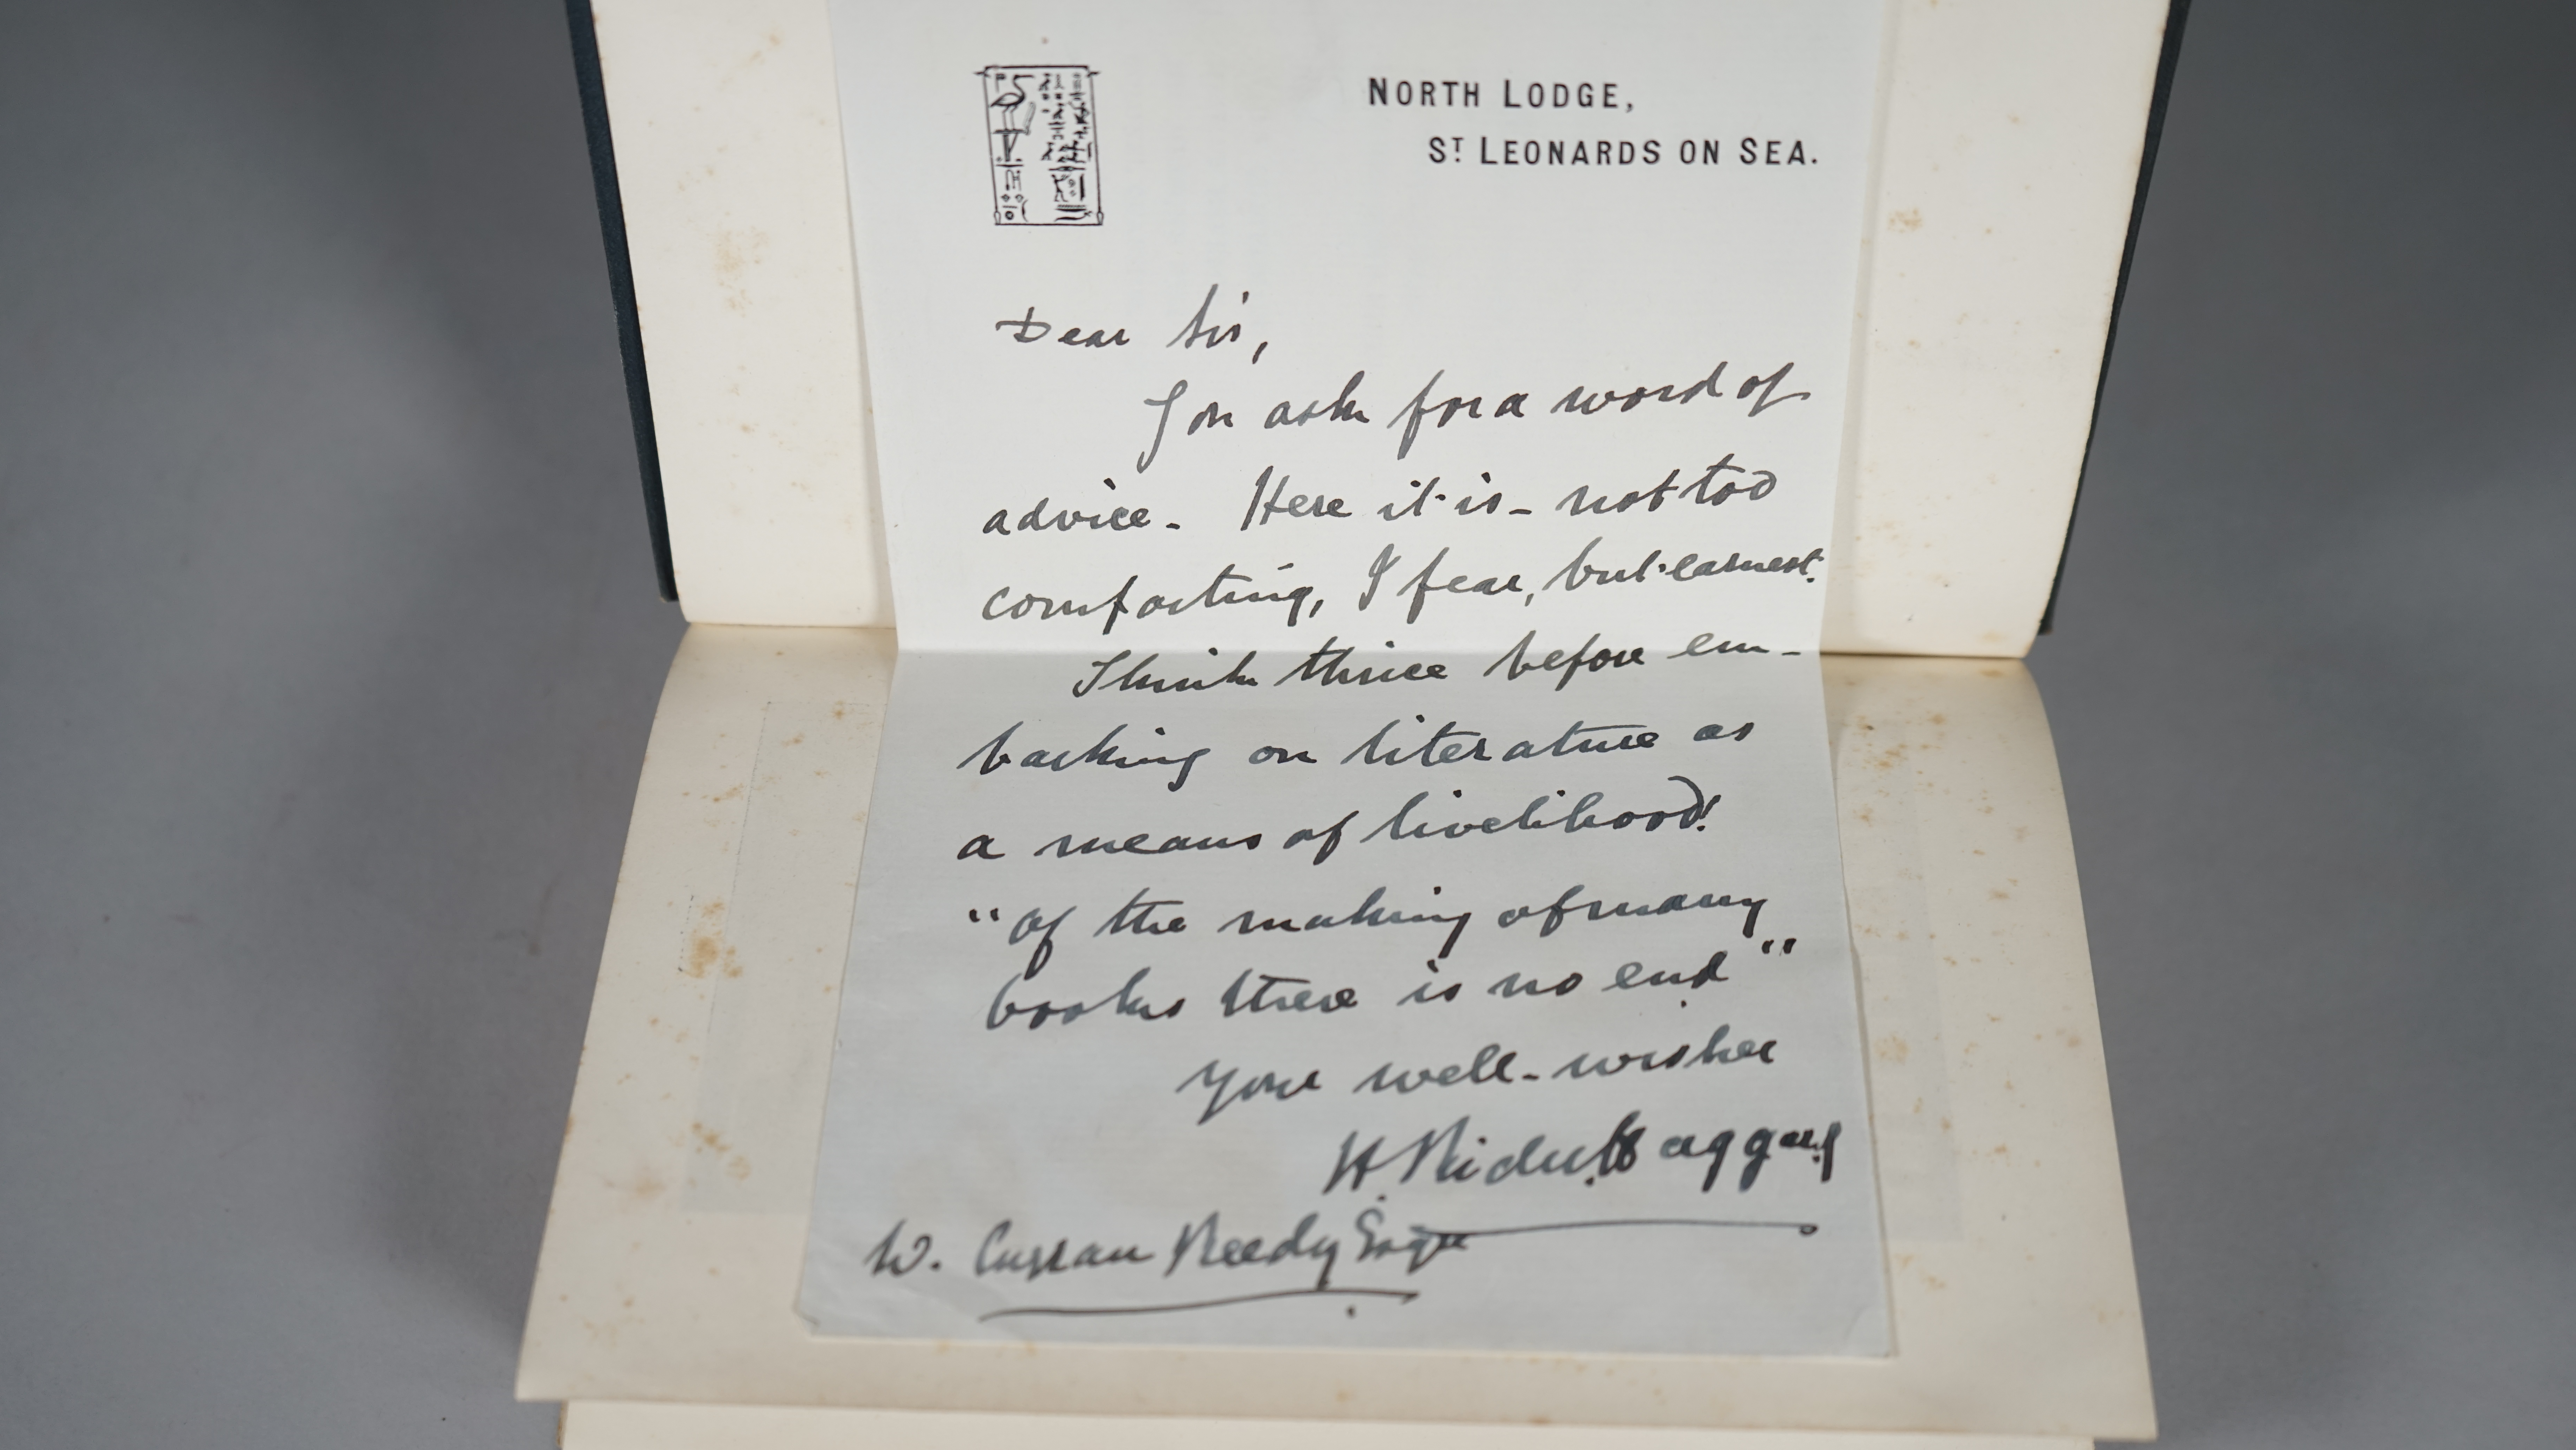 NORTH LODGE,
ST LEONARDS ON SEA.
Dear Sir,
You ask for a word of
advice - Here it is - not too
comforting, I fear, but earnest.
Think thrice before em-
barking on literature as
a means of livelihood!
"Of the making of many
books there is no end"
Your well-wisher
H. Rider Haggard
W. Curran Reedy Esqre